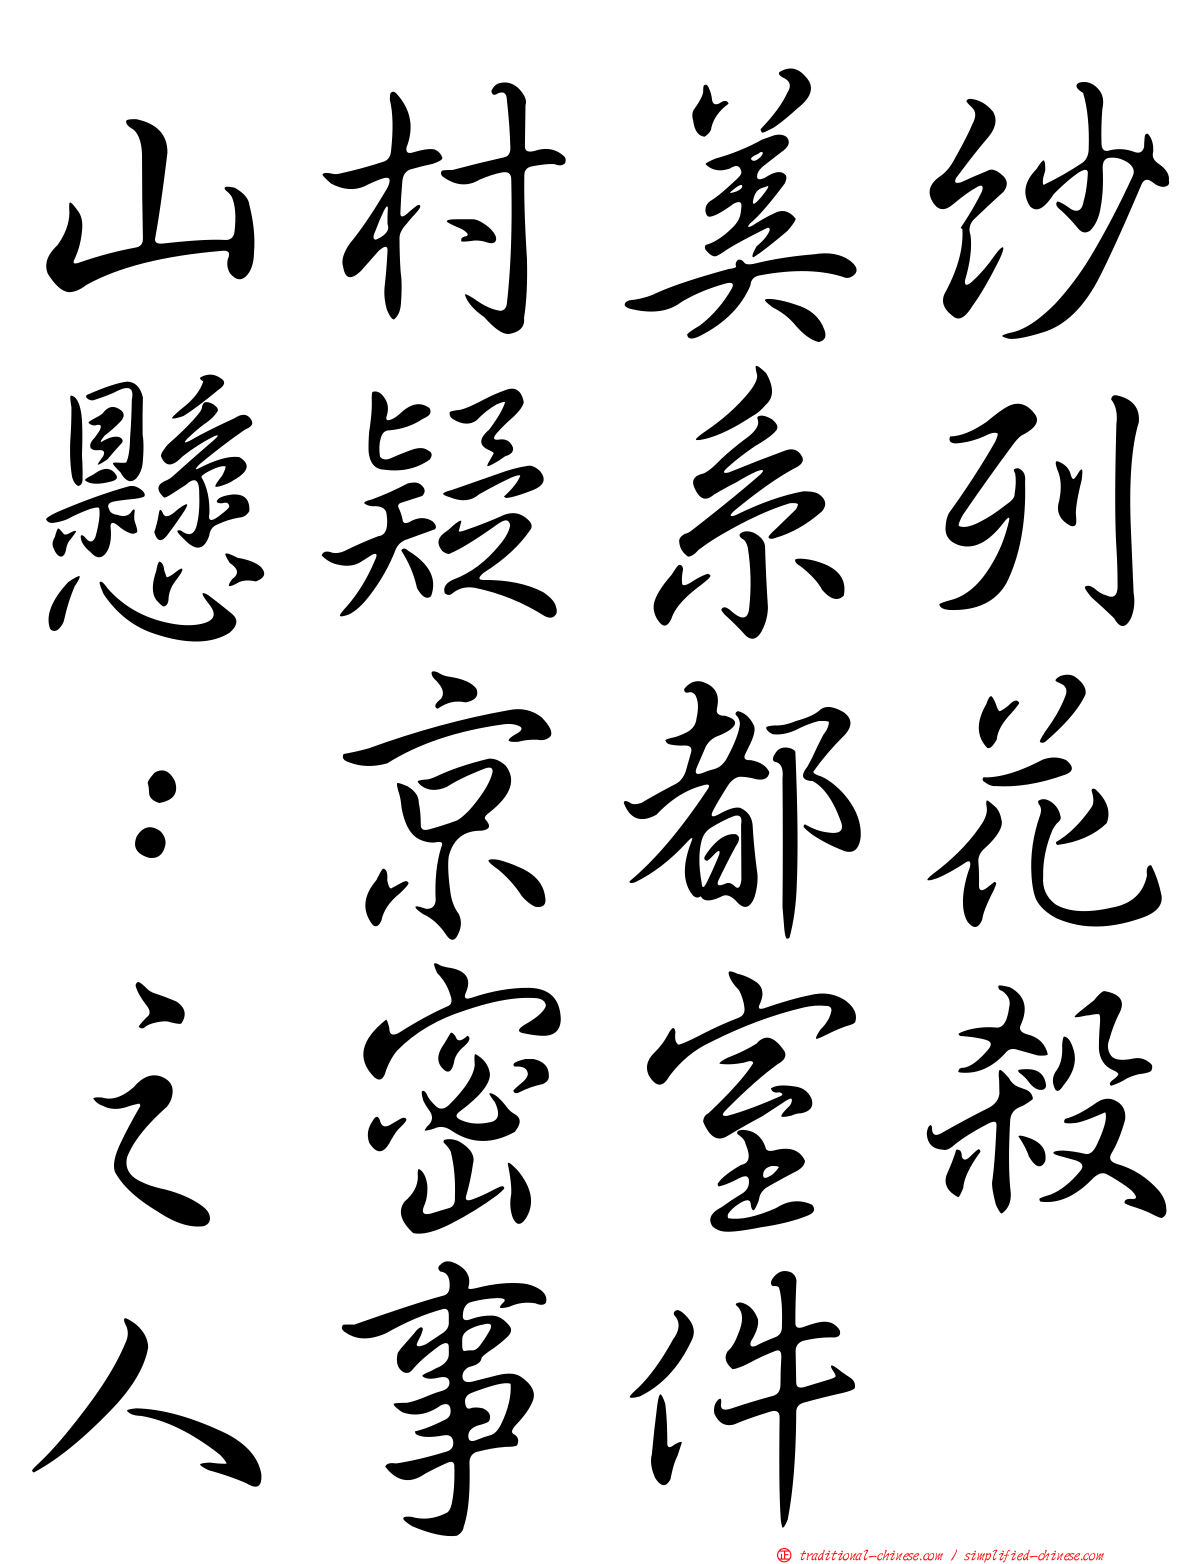 山村美紗
懸疑系列
：京都花
之密室殺
人事件
㊣ traditional-chinese.com / simplified-chinese.com